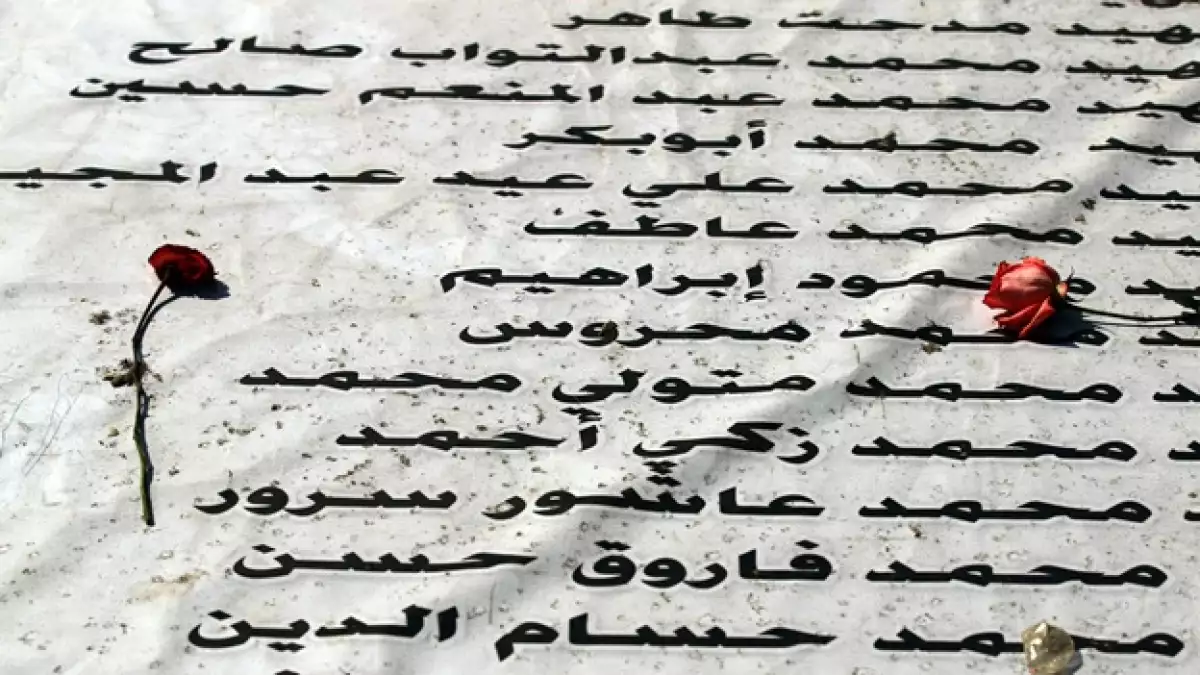 ـهيد مدحت طاهر
ـهيد محمد عبدالتواب صالح
ـهيد محمد عبد المنعم حسين
ـيد محمد أبوبكر
ـيد محمد علي عيد عبد المجيـ
ـيد محمد عاطف
ـد محمود إبراهيم
ـد محمد محروس
ـد محمد متولي محمد
ـد محمد زكي أحمد
محمد عاشور سرور
محمد فاروق حسن
محمد حسام الدين